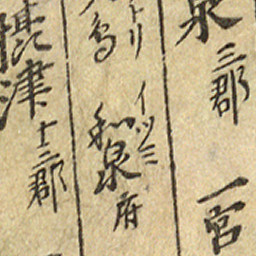 泉三郡 一宮
トリ イツミ
鳥 和泉府
津十三郡